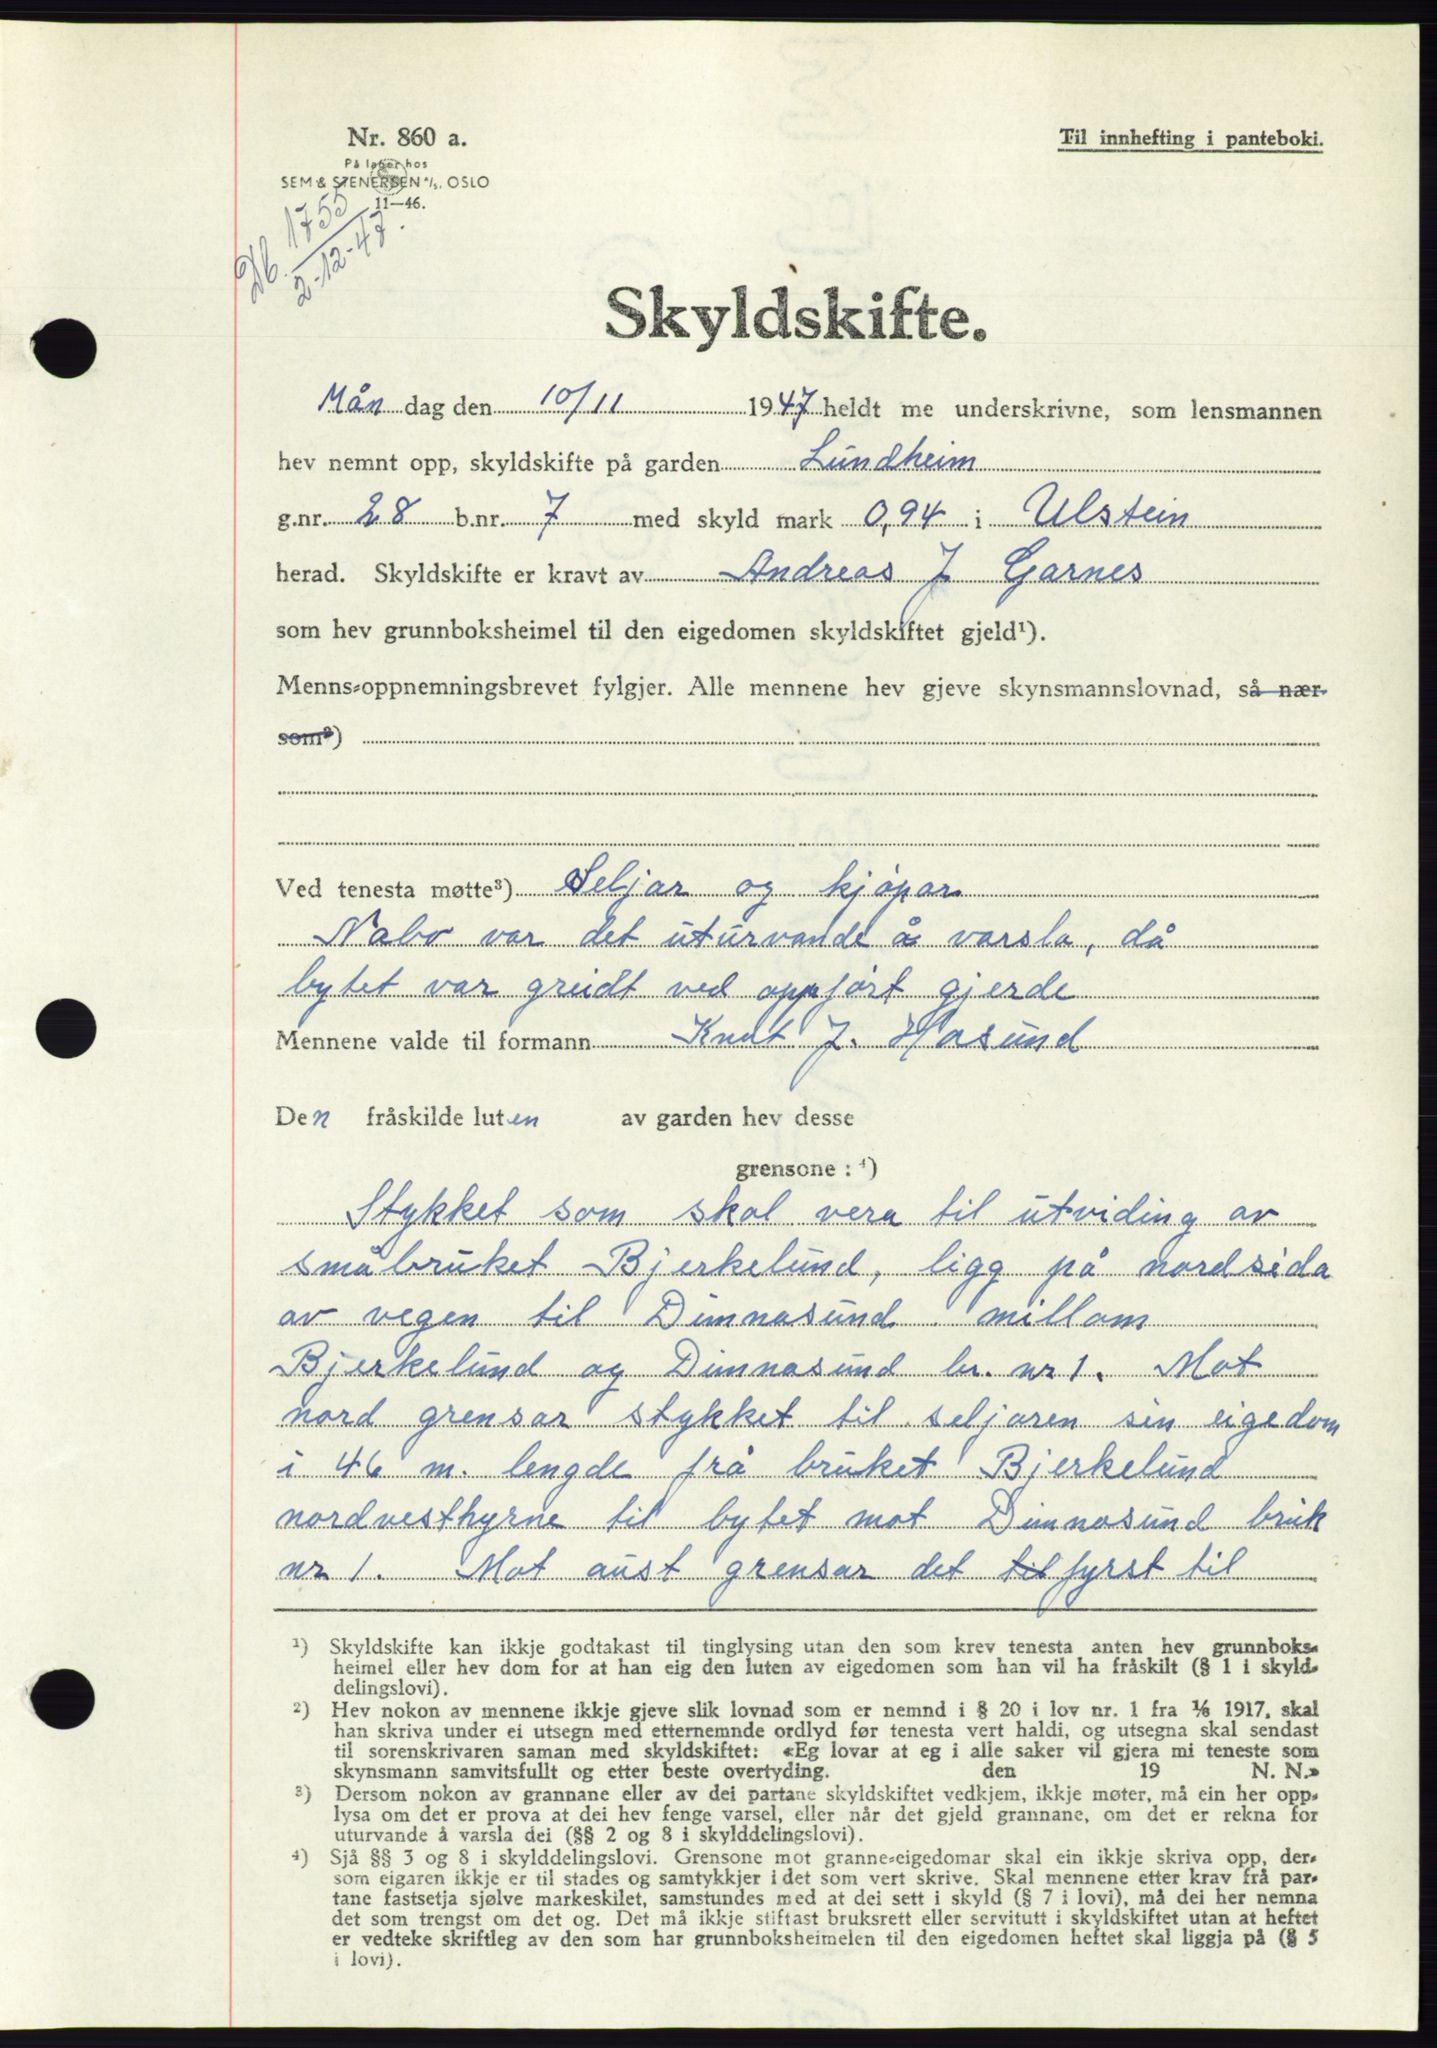 Nr. 860 a.
Til innhefting i panteboki.
På lager hos
SEM & STENERSEN A/S, OSLO
11—46.
Db. 1755
2-12-47.
Skyldskifte.
Måndag den 10/11 1947 heldt me underskrivne, som lensmannen
hev nemnt opp, skyldskifte på garden Lundheim
g.nr. 28 b.nr. 7 med skyld mark 0,94 i Ulstein
herad. Skyldskifte er kravt av Andreas J Garnes
som hev grunnboksheimel til den eigedomen skyldskiftet gjeld¹).
Menns-oppnemningsbrevet fylgjer. Alle mennene hev gjeve skynsmannslovnad, så nær
som²)
Ved tenesta møtte³) Seljar og kjøpar
Nabo var det uturvande å varsla, då
bytet var greidt ved oppført gjerde
Mennene valde til formann Knut J. Hasund
Den fråskilde luten av garden hev desse
grensone: ⁴)
Stykket som skal vera til utviding av
småbruket Bjerkelund, ligg på nordsida
av vegen til Dimnasund millom
Bjerkelund og Dimnasund br. nr 1. Mot
nord grensar stykket til seljaren sin eigedom
i 46 m. lengde frå bruket Bjerkelund
nordvesthyrne til bytet mot Dimnasund bruk
nr 1. Mot aust grensar det til fyrst til
¹) Skyldskifte kan ikkje godtakast til tinglysing utan den som krev tenesta anten hev grunnboks-
heimel eller hev dom for at han eig den luten av eigedomen som han vil ha fråskilt (§ 1 i skyld-
delingslovi).
²) Hev nokon av mennene ikkje gjeve slik lovnad som er nemnd i § 20 i lov nr. 1 fra ⅙ 1917, skal
han skriva under ei utsegn med etternemnde ordlyd før tenesta vert haldi, og utsegna skal sendast
til sorenskrivaren saman med skyldskiftet: «Eg lovar at eg i alle saker vil gjera mi teneste som
skynsmann samvitsfullt og etter beste overtyding. den 19 N. N.»
³) Dersom nokon av grannane eller av dei partane skyldskiftet vedkjem, ikkje møter, må ein her opp-
lysa om det er prova at dei hev fenge varsel, eller når det gjeld grannane, om det er rekna for
uturvande å varsla dei (§§ 2 og 8 i skylddelingslovi).
⁴) Sjå §§ 3 og 8 i skylddelingslovi. Grensone mot granne-eigedomar skal ein ikkje skriva opp, der-
som eigaren ikkje er til stades og samtykkjer i det som vert skrive. Skal mennene etter krav frå par-
tane fastsetja sjølve markeskilet, samstundes med at dei sett i skyld (§ 7 i lovi), må dei her nemna
det som trengst om det og. Det må ikkje stiftast bruksrett eller servitutt i skyldskiftet utan at heftet
er vedteke skriftleg av den som har grunnboksheimelen til den eigedomen heftet skal liggja på (§ 5
i lovi).